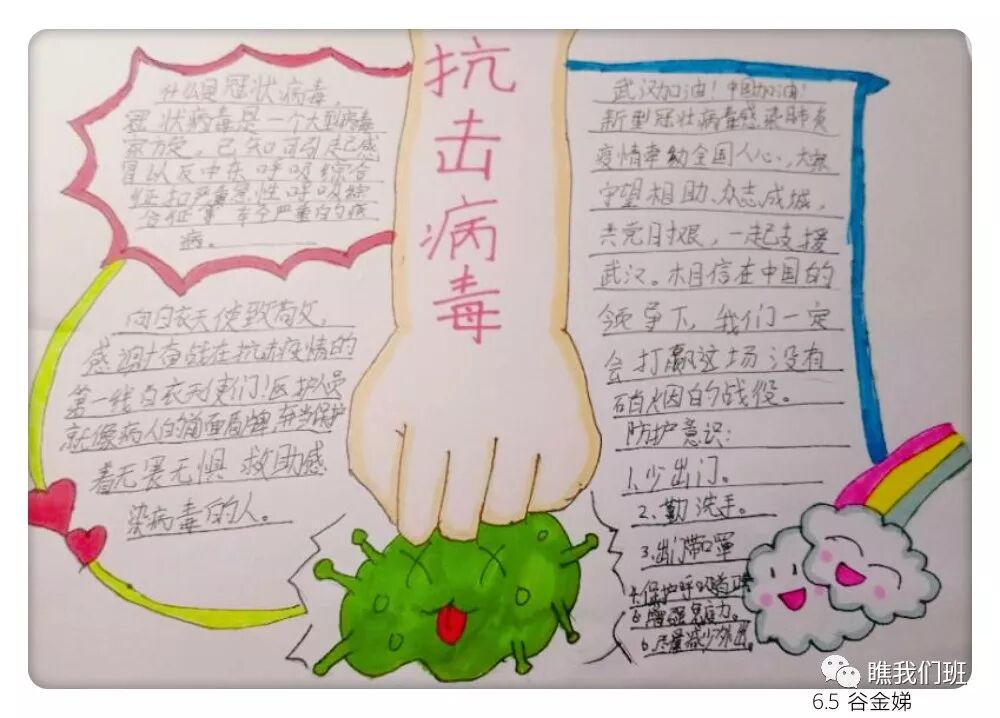 抗击病毒
什么是冠状病毒
冠状病毒是一个大型病毒
家族,已知可引起感
冒以及中东呼吸综合
征和严重急性呼吸综
合征等 严重的疾
病。
向白衣天使致敬
感谢奋战在抗击疫情的
第一线白衣天使们!医护人员
就像病人的前面盾牌
着无畏无惧 救助感
染病毒的人。
武汉加油!中国加油!
新型冠壮病毒感染肺炎
疫情牵动全国人心,大家
守望相助、众志成城,
共克时艰,一起支援
武汉。相信在中国的
领导下,我们一定
会打赢这场没有
硝烟的战役。
防护意识:
1、少出门。
2、勤洗手。
3、出门带口罩
4、保护呼吸道
6、增强免疫力。
6、尽量减少外出。
瞧我们班
6.5 谷金娣